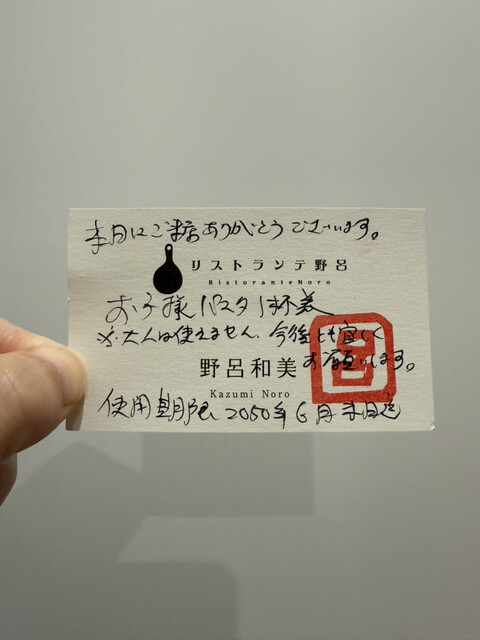 本日はご来店ありがとうございます。
リストランテ野呂
RistoranteNoro
お子様パスタ1杯
※大人は使えません。今後とも宜しく
お願いします。
野呂和美
呂
Kazumi Noro
使用期限 2050年6月末日迄